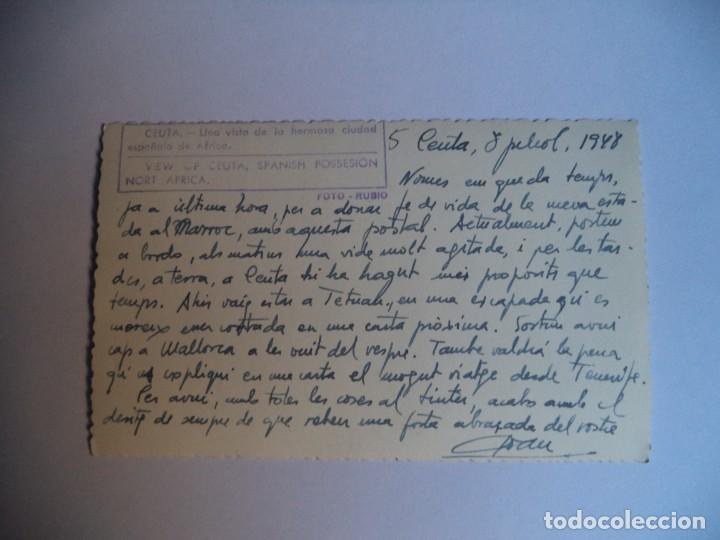 CEUTA. - Una vista de la hermosa ciudad
española de Africa.
VIEW OF CEUTA, SPANISH POSSESIÓN
NORT AFRICA.
FOTO - RUBIO
5 Ceuta, 8 juliol, 1948
Nomes em queda temps,
ja a última hora, per a donar fe de vida de la meva esta-
da al Marroc, amb aquesta postal. Actualment, portem
a bordo, als matins una vida molt agitada, i per les tar-
des, a terra, a Ceuta hi ha hagut més propòsits que
temps. Ahir vaig estar a Tetuan, en una escapada qui es
mereix en una carta pròxima. Sortim avui
cap a Mallorca a les vuit del vespre. També valdrà la pena
qu us expliqui en una carta el mogut viatge desde Tenerife.
Per avui, amb totes les coses al tinter, acabo amb el
desitg de sempre de que reben una forta abraçada del vostre
Joan
todocoleccion
todocoleccion.net